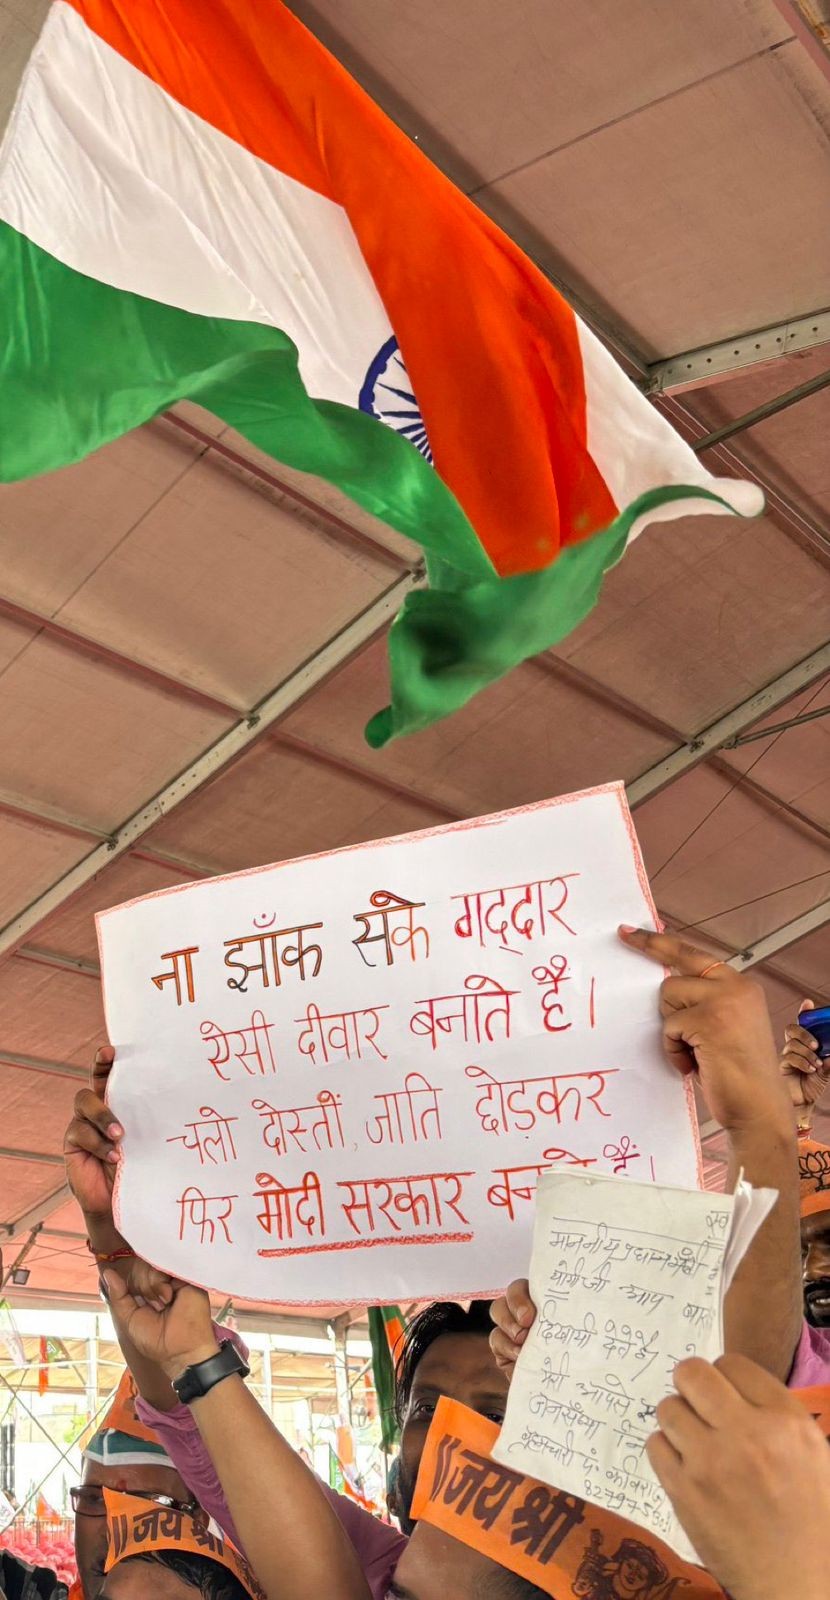 ना झाँक सके गद्दार
ऐसी दीवार बनाते है।
चलो दोस्तों, जाति छोड़कर
फिर मोदी सरकार
माननीय प्रधानमंत्री
योगी जी आप
दिखायी देते है।
मेरी आपसे
जनसंख्या
पं.
॥जय श्री
॥जय श्री